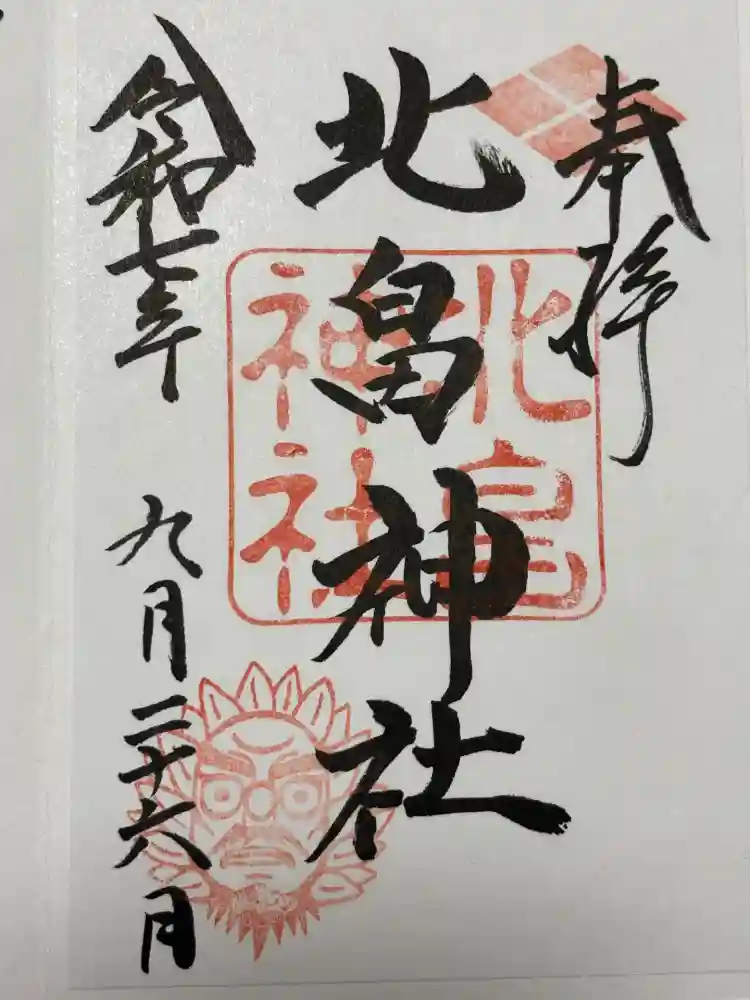 奉拝
北畠神社
北畠
神社
令和七年 九月二十六日